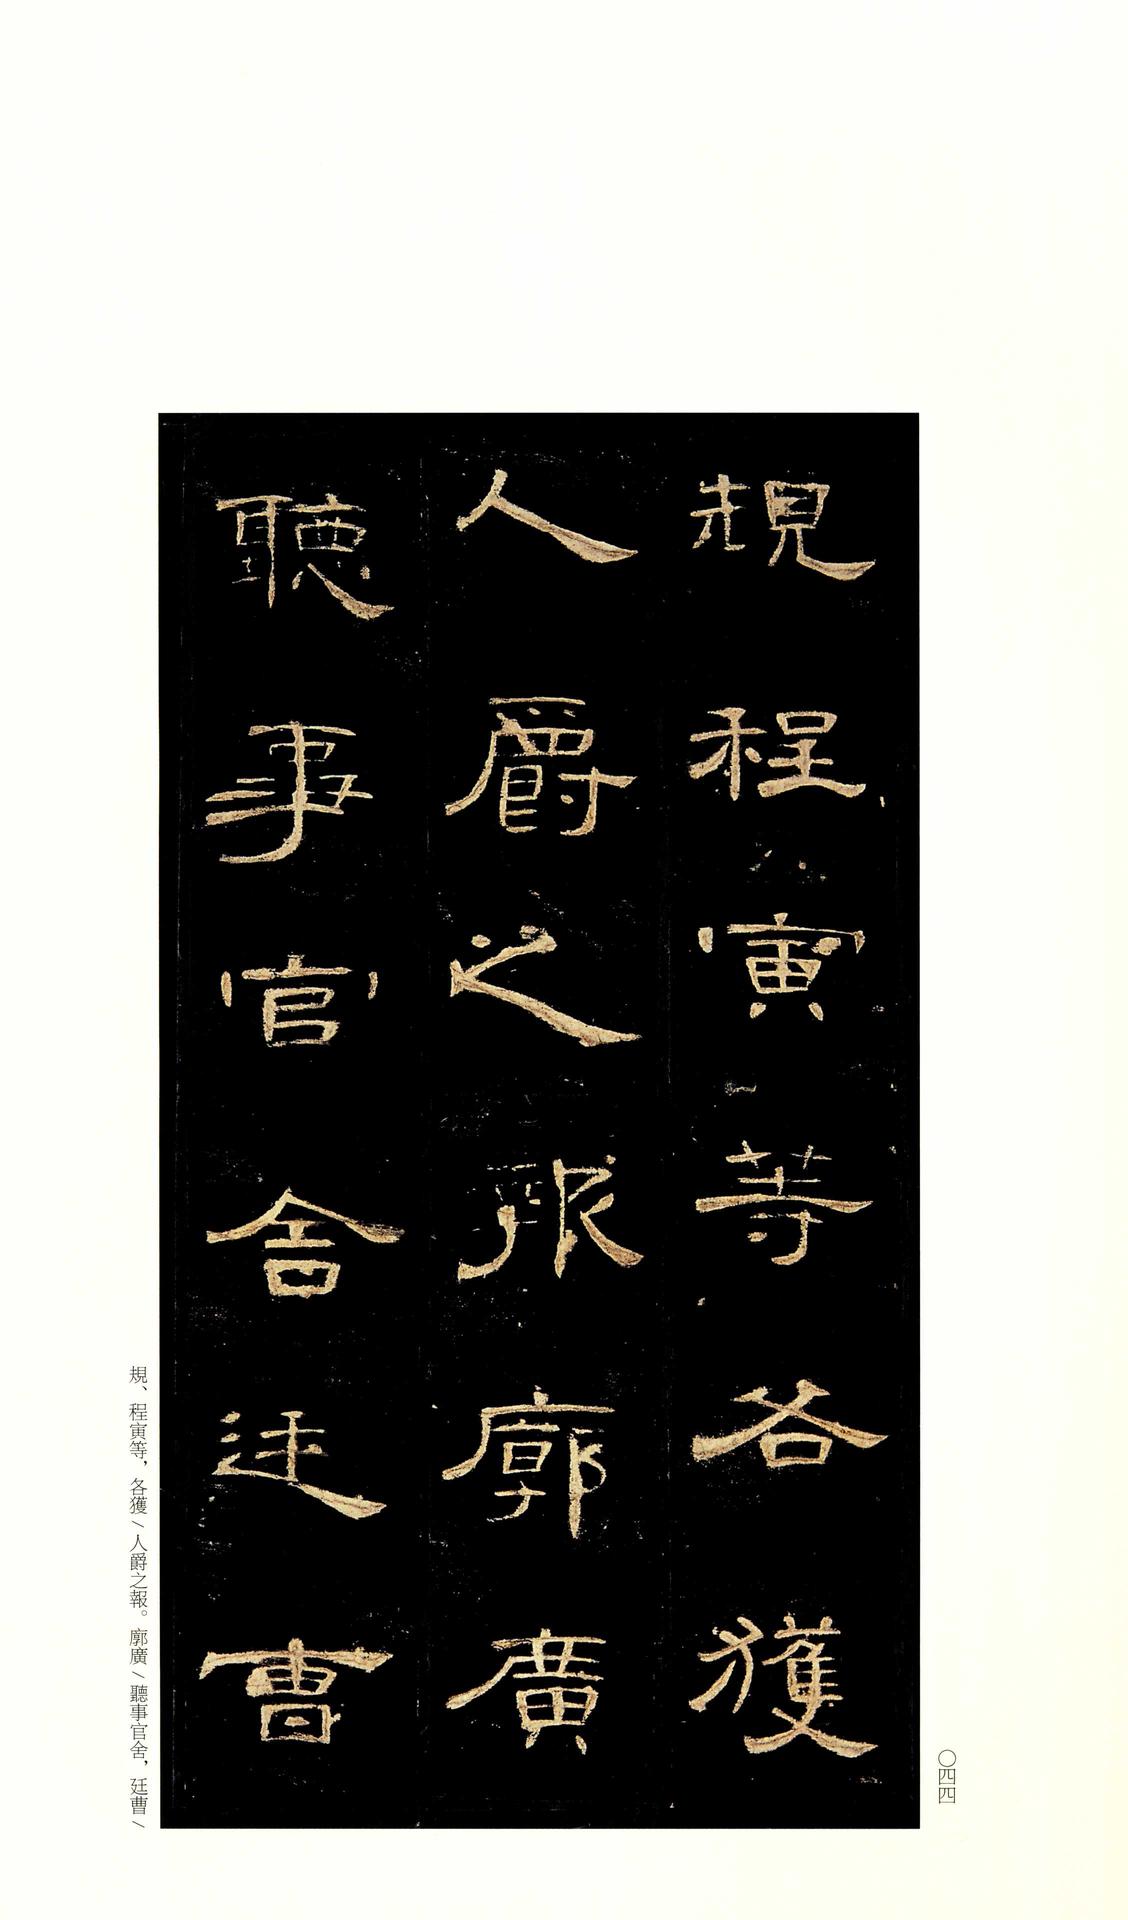 規程寅等各獲
人爵之報廓廣
聽事官舍廷曹
規、程寅等，各獲／人爵之報。廓廣／聽事官舍，廷曹／
〇四四